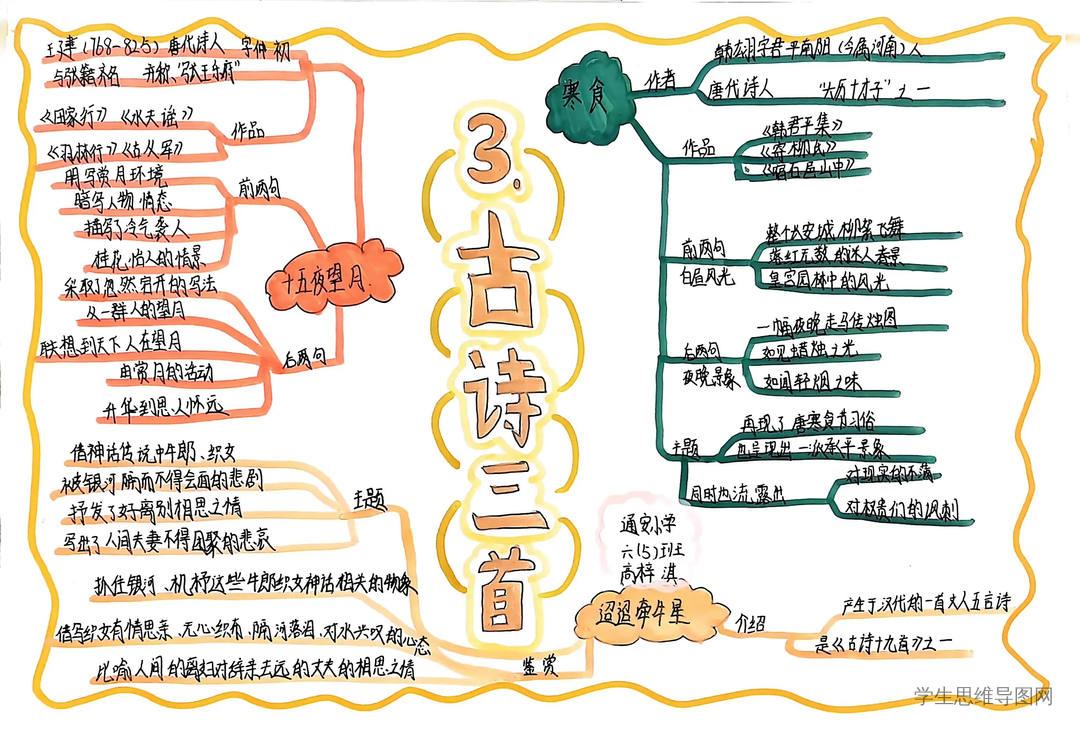 3.古诗三首
寒食
作者
韩翃字君平南阳(今属河南)人
唐代诗人 "大历十才子"之一
作品
《韩君平集》
前两句
白昼风光
整个长安城柳絮飞舞
落红无数的迷人春景
皇宫园林中的风光
后两句
夜晚景象
一幅夜晚走马传烛图
如见蜡烛之光
如闻轻烟之味
主题
再现了唐寒食节习俗
也呈现出一派承平景象
同时也流露出
对现实的不满
对权贵们的讽刺
十五夜望月
王建(768-825)唐代诗人 字仲初
与张籍齐名 并称"张王乐府"
作品
《田家行》《水夫谣》
《羽林行》《古从军》
前两句
用写赏月环境
暗写人物情态
描写了冷气袭人
桂花怡人的情景
后两句
采取了忽然宕开的写法
从一群人的望月
联想到天下人在望月
由赏月的活动
升华到思人怀远
迢迢牵牛星
介绍
产生于汉代的一首文人五言诗
是《古诗十九首》之一
主题
借神话传说中牛郎、织女
被银河隔而不得会面的悲剧
抒发了好离别相思之情
写出了人间夫妻不得团聚的悲哀
鉴赏
抓住银河、机杼这些牛郎织女神话相关的物象
借写织女有情思亲、无心织布、隔河落泪、对水兴叹的心态
比喻人间的离妇对辞亲去远的丈夫的相思之情
通安小学
六(5)班
高梓淇
学生思维导图网